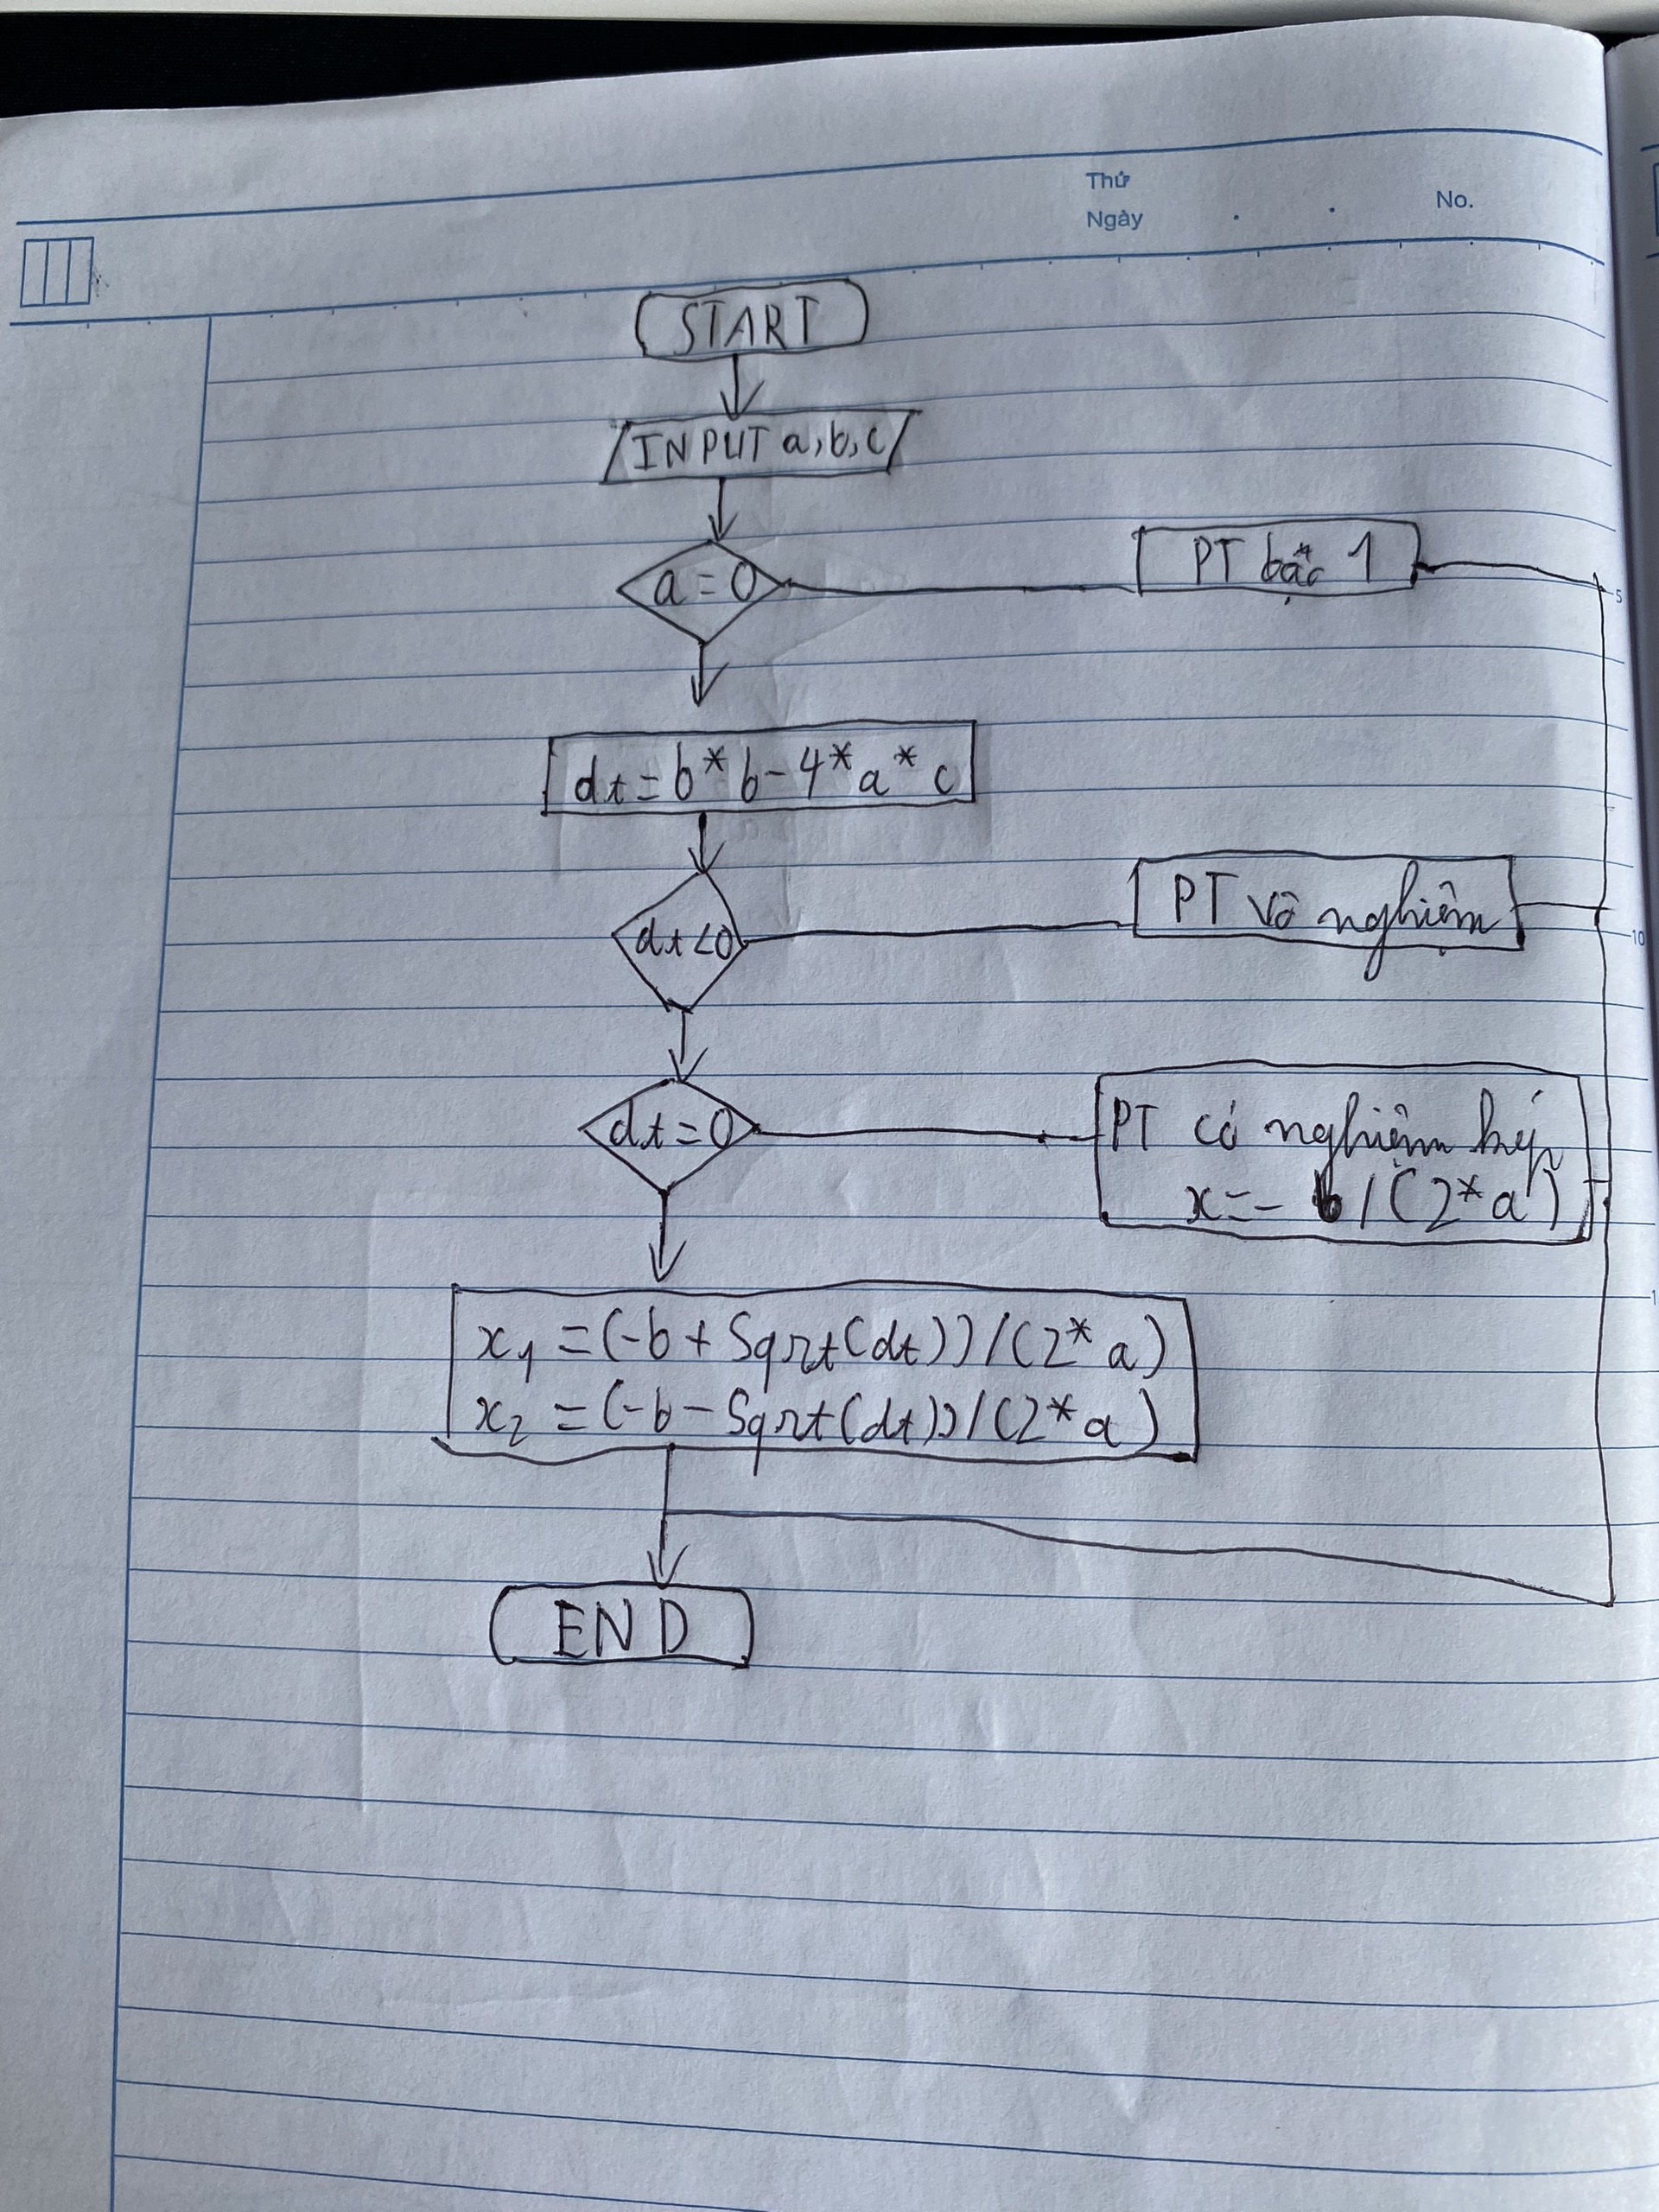 Thứ
Ngày
No.
START
INPUT a, b, c
a = 0
PT bậc 1
5
dt = b * b - 4 * a * c
dt < 0
PT vô nghiệm
10
dt = 0
PT có nghiệm kép
x = - b / (2 * a)
x1 = (-b + Sqrt(dt)) / (2 * a)
x2 = (-b - Sqrt(dt)) / (2 * a)
END